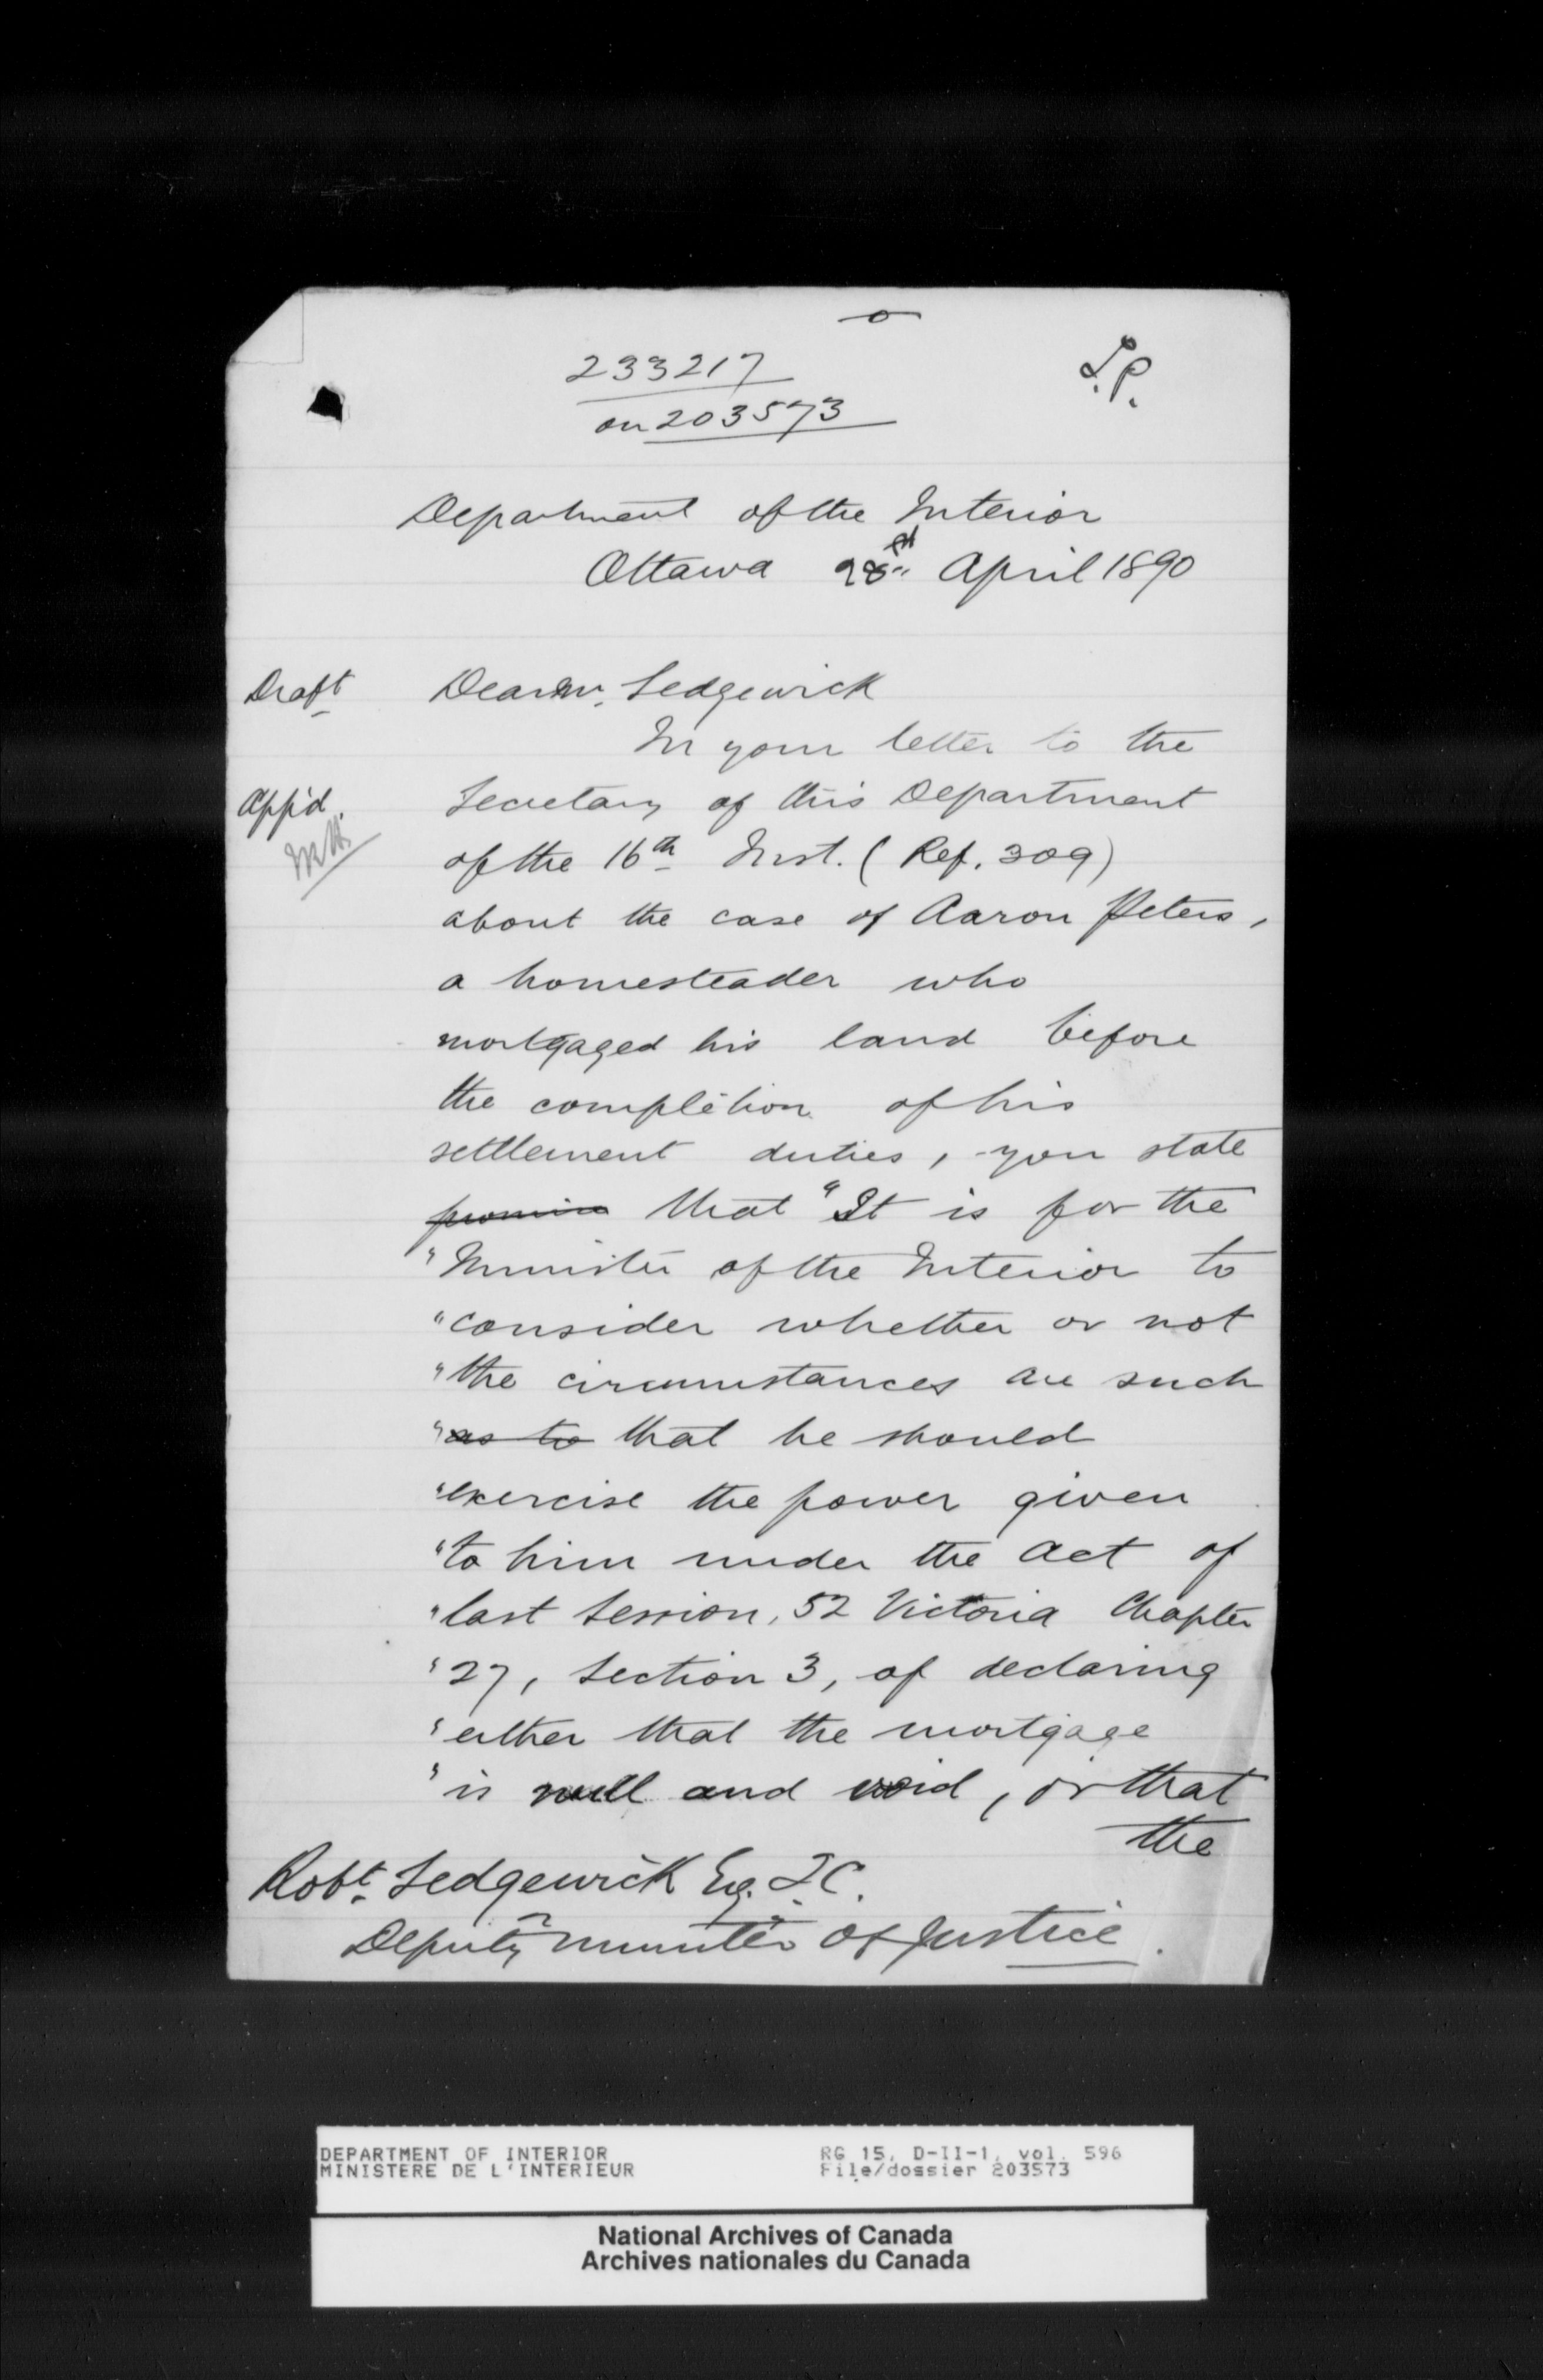 233217
on 203573
L.P.
Department of the Interior
Ottawa 28th April 1890
Draft
Dear Mr. Sedgewick
In your letter to the
App'd.
Secretary of this Department
of the 16th Inst. (Ref. 309)
about the case of Aaron Peters,
a homesteader who
mortgaged his land before
the completion of his
settlement duties, you state
that "It is for the
"Minister of the Interior to
"consider whether or not
"the circumstances are such
"as to that he should
"exercise the power given
"to him under the Act of
"last Session, 52 Victoria Chapter
"27, Section 3, of declaring
"either that the mortgage
"is null and void, or that
the
Robt. Sedgewick Esq. Q.C.
Deputy Minister of Justice.
DEPARTMENT OF INTERIOR
MINISTERE DE L'INTERIEUR
RG 15, D-II-1, vol. 596
File/dossier 203573
National Archives of Canada
Archives nationales du Canada